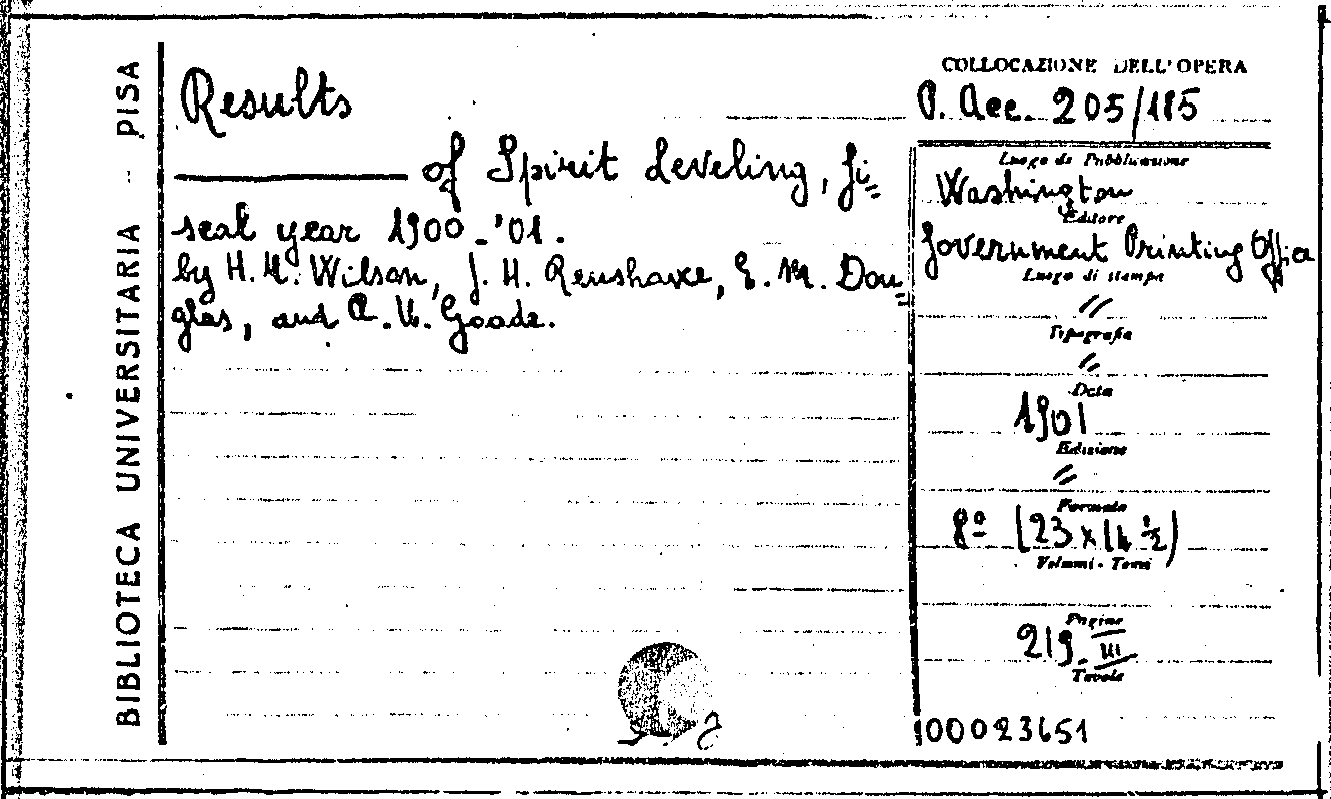 BIBLIOTECA UNIVERSITARIA - PISA
Results
of Spirit Leveling, fi=
scal year 1900-'01.
by H. M. Wilson, J. H. Renshawe, E. M. Dou=
glas, and R. U. Goode.
COLLOCAZIONE DELL'OPERA
P. Acc. 205/185
Luogo di Pubblicazione
Washington
Editore
Government Printing Office
Luogo di stampa
//
Tipografia
//
Data
1901
Edizione
//
Formato
8º (23 x 14 ½)
Volumi - Tomi
Pagine
219. III
Tavole
100023651